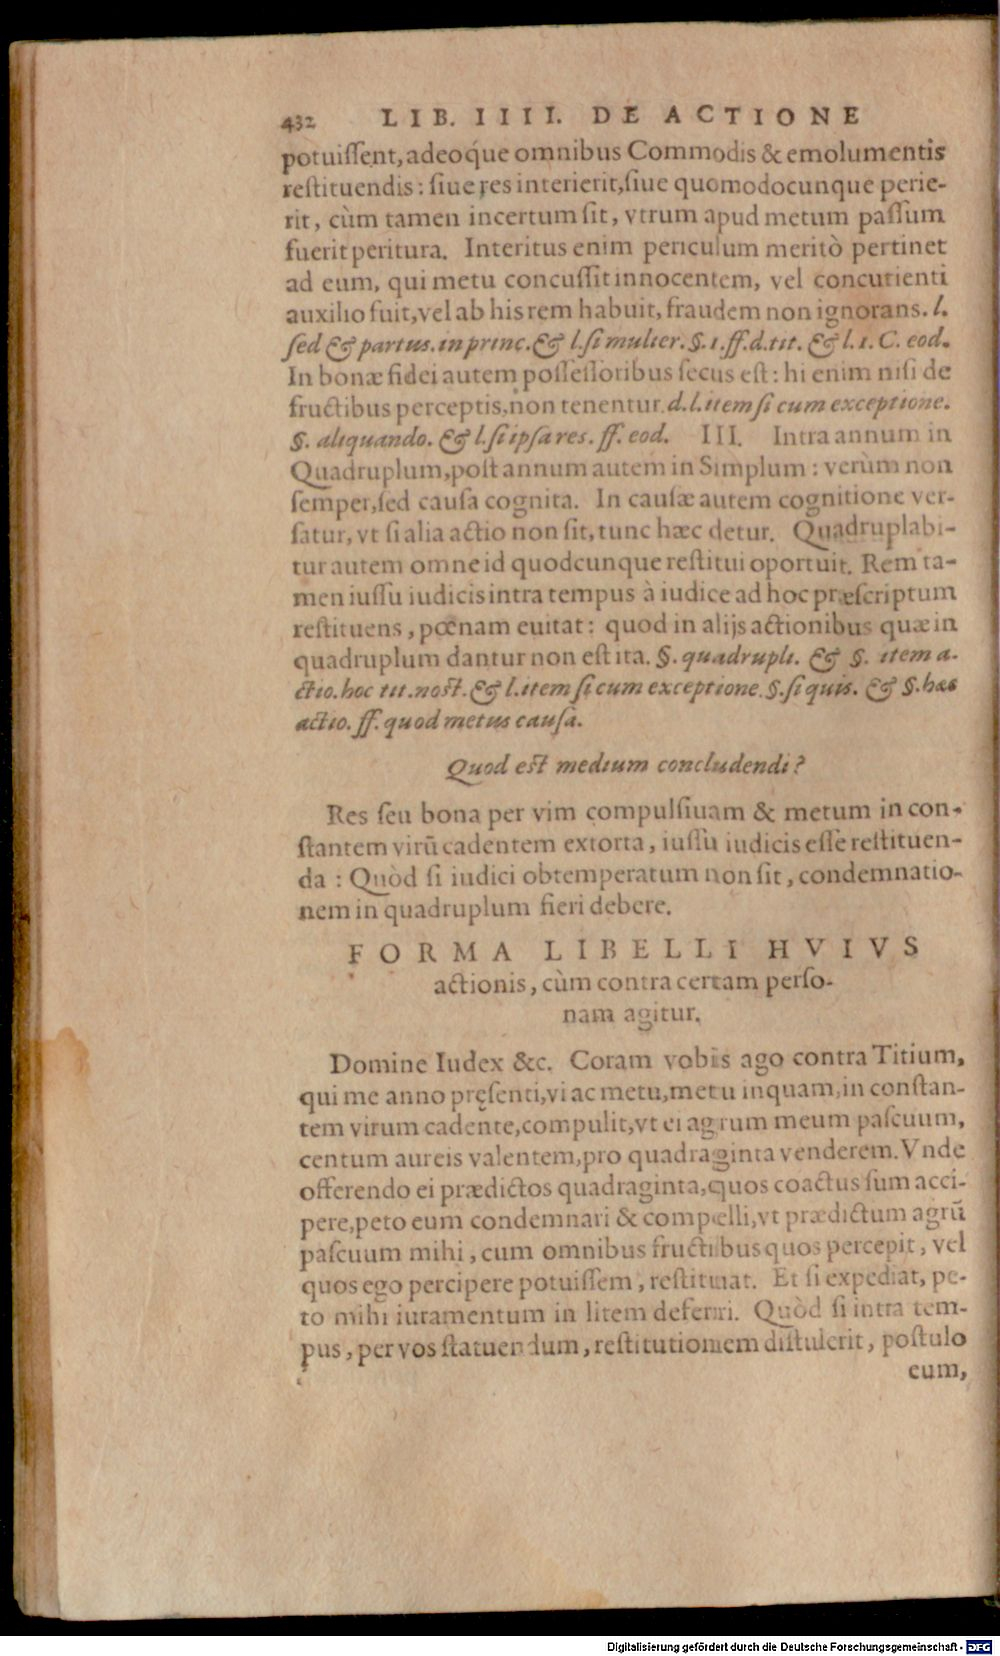 432 LIB. IIII. DE ACTIONE
potuiſſent, adeoq́ue omnibus Commodis & emolumentis
reſtituendis: ſiue res interierit, ſiue quomodocunque perie-
rit, cùm tamen incertum ſit, vtrum apud metum paſſum
fuerit peritura. Interitus enim periculum meritò pertinet
ad eum, qui metu concuſſit innocentem, vel concutienti
auxilio fuit, vel ab his rem habuit, fraudem non ignorans. l.
ſed & partus. in princ. & l. ſi mulier. §. 1. ff. d. tit. & l. 1. C. eod.
In bonæ fidei autem poſſeſſoribus ſecus eſt: hi enim niſi de
fructibus perceptis, non tenentur. d. l. item ſi cum exceptione.
§. aliquando. & l. ſi ipſa res. ff. eod. III. Intra annum in
Quadruplum, poſt annum autem in Simplum: verùm non
ſemper, ſed cauſa cognita. In cauſæ autem cognitione ver-
ſatur, vt ſi alia actio non ſit, tunc hæc detur. Quadruplabi-
tur autem omne id quodcunque reſtitui oportuit. Rem ta-
men iuſſu iudicis intra tempus à iudice ad hoc præſcriptum
reſtituens, pœnam euitat: quod in alijs actionibus quæ in
quadruplum dantur non eſt ita. §. quadrupli. & §. item a-
ctio. hoc tit. noſt. & l. item ſi cum exceptione. §. ſi quis. & §. hæc
actio. ff. quod metus cauſa.
Quod eſt medium concludendi?
Res ſeu bona per vim compulſiuam & metum in con-
ſtantem virũ cadentem extorta, iuſſu iudicis eſſe reſtituen-
da: Quòd ſi iudici obtemperatum non ſit, condemnatio-
nem in quadruplum fieri debere.
FORMA LIBELLI HVIVS
actionis, cùm contra certam perſo-
nam agitur.
Domine Iudex &c. Coram vobis ago contra Titium,
qui me anno pręſenti, vi ac metu, metu inquam, in conſtan-
tem virum cadente, compulit, vt ei agrum meum paſcuum,
centum aureis valentem, pro quadraginta venderem. Vnde
offerendo ei prædictos quadraginta, quos coactus ſum acci-
pere, peto eum condemnari & compelli, vt prædictum agrũ
paſcuum mihi, cum omnibus fructibus quos percepit, vel
quos ego percipere potuiſſem, reſtituat. Et ſi expediat, pe-
to mihi iuramentum in litem deferri. Quòd ſi intra tem-
pus, per vos ſtatuendum, reſtitutionem diſtulerit, poſtulo
eum,
Digitalisierung gefördert durch die Deutsche Forschungsgemeinschaft - DFG